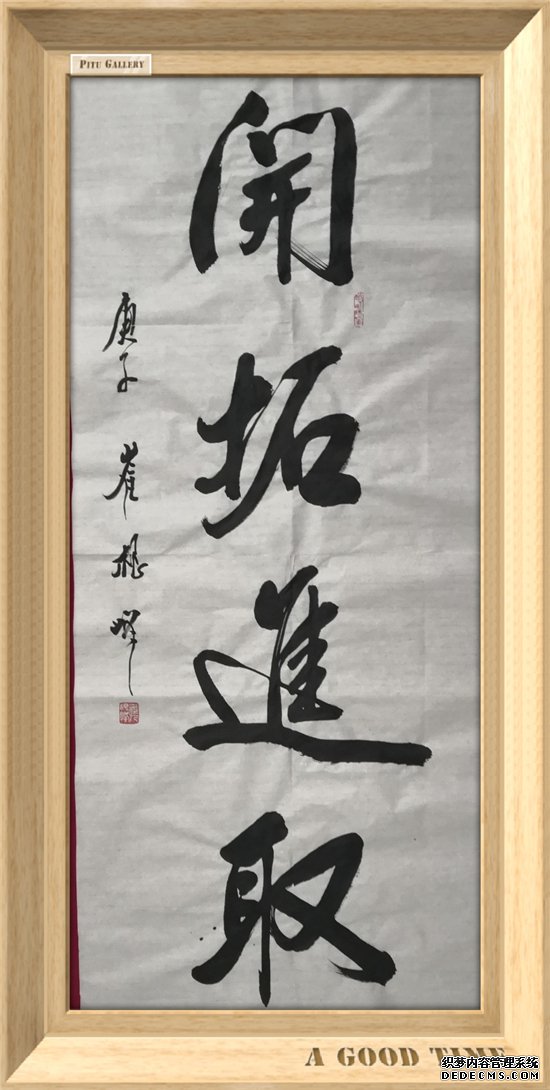 PITU GALLERY
開拓進取
庚子 崔振峰
A GOOD TIME
织梦内容管理系统
DEDECMS.COM